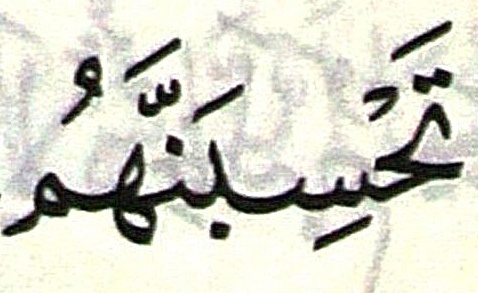 تَحْسِبَنَّهُم